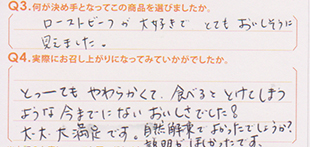 Q3.何が決め手となってこの商品を選びましたか。
ローストビーフが大好きで とてもおいしそうに
見えました。
Q4.実際にお召し上がりになってみていかがでしたか。
とっーてもやわらかくて、食べるととけてしまう
ような今までにないおいしさでした!
大・大・大満足です。自然解凍でよかったでしょうか?
説明がほしかったです。